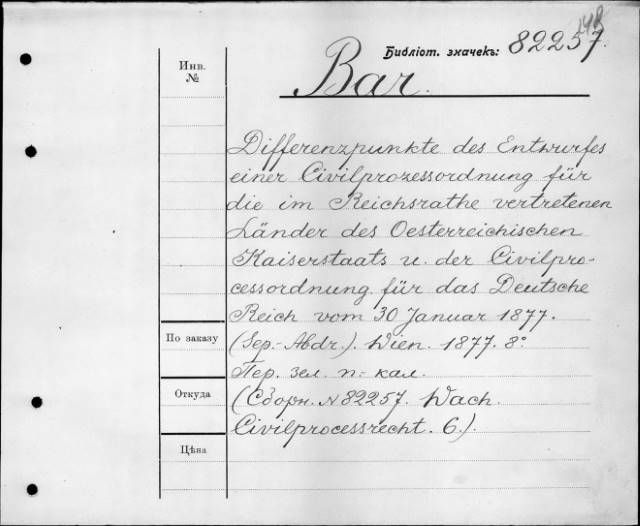 Библіот. значекъ: 82257.
Инв.
№
Bar.
Differenzpunkte des Entwurfes
einer Civilprozessordnung für
die im Reichsrathe vertretenen
Länder des Oesterreichischen
Kaiserstaats u. der Civilpro-
cessordnung für das Deutsche
Reich vom 30 Januar 1877.
По заказу
(Sep.-Abdr.). Wien. 1877. 8°
Пер. зел. п.- кал.
Откуда
(Сборн. N 82257. Wach.
Civilprocessrecht. 6.).
Цѣна